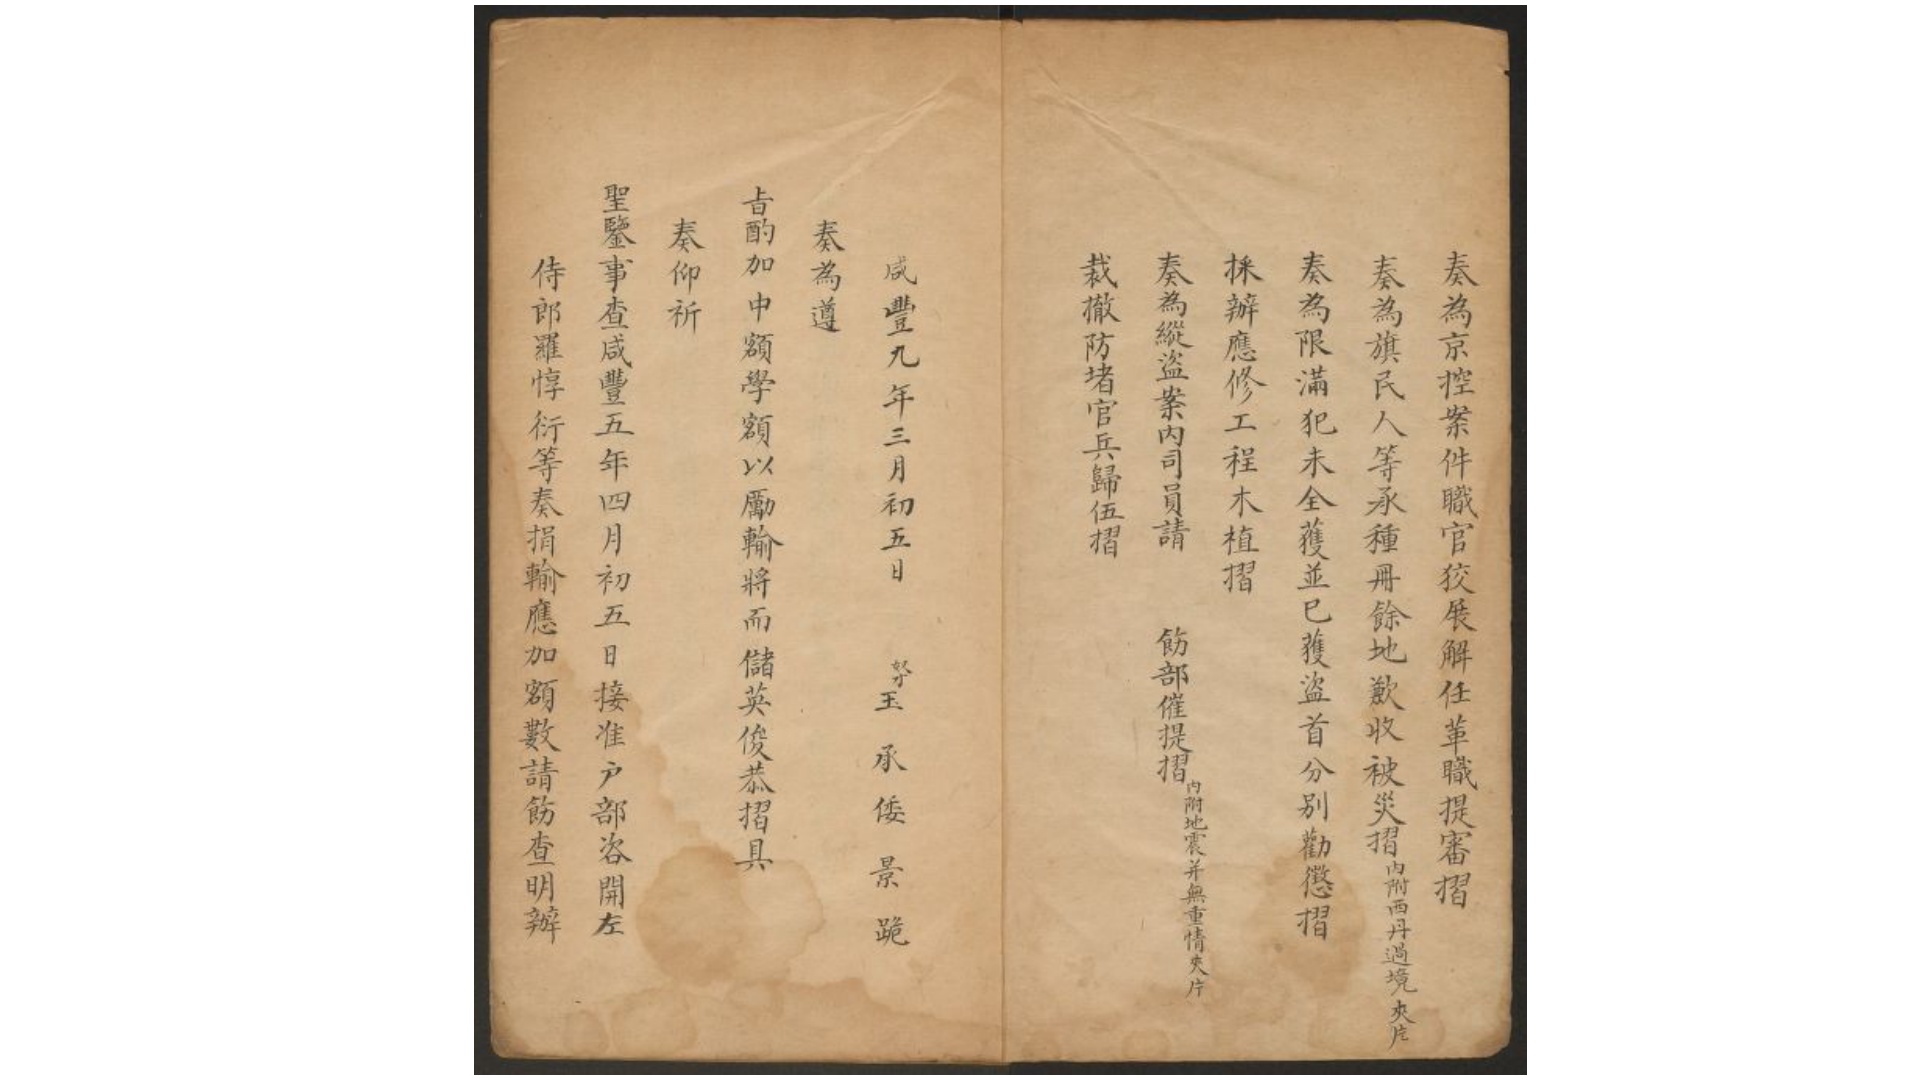 奏為京控案件職官狡展解任革職提審摺
奏為旗民人等承種冊餘地歉收被災摺內附西丹過境夾片
奏為限滿犯未全獲並已獲盜首分別勸懲摺
採辦應修工程木植摺
奏為縱盜案內司員請 飭部催提摺內附地震并無重情夾片
裁撤防堵官兵歸伍摺
咸豐九年三月初五日 奴才玉承倭景跪
奏為遵
旨酌加中額學額以勵輸將而儲英俊恭摺具
奏仰祈
聖鑒事查咸豐五年四月初五日接准戶部咨開左
侍郎羅惇衍等奏捐輸應加額數請飭查明辦